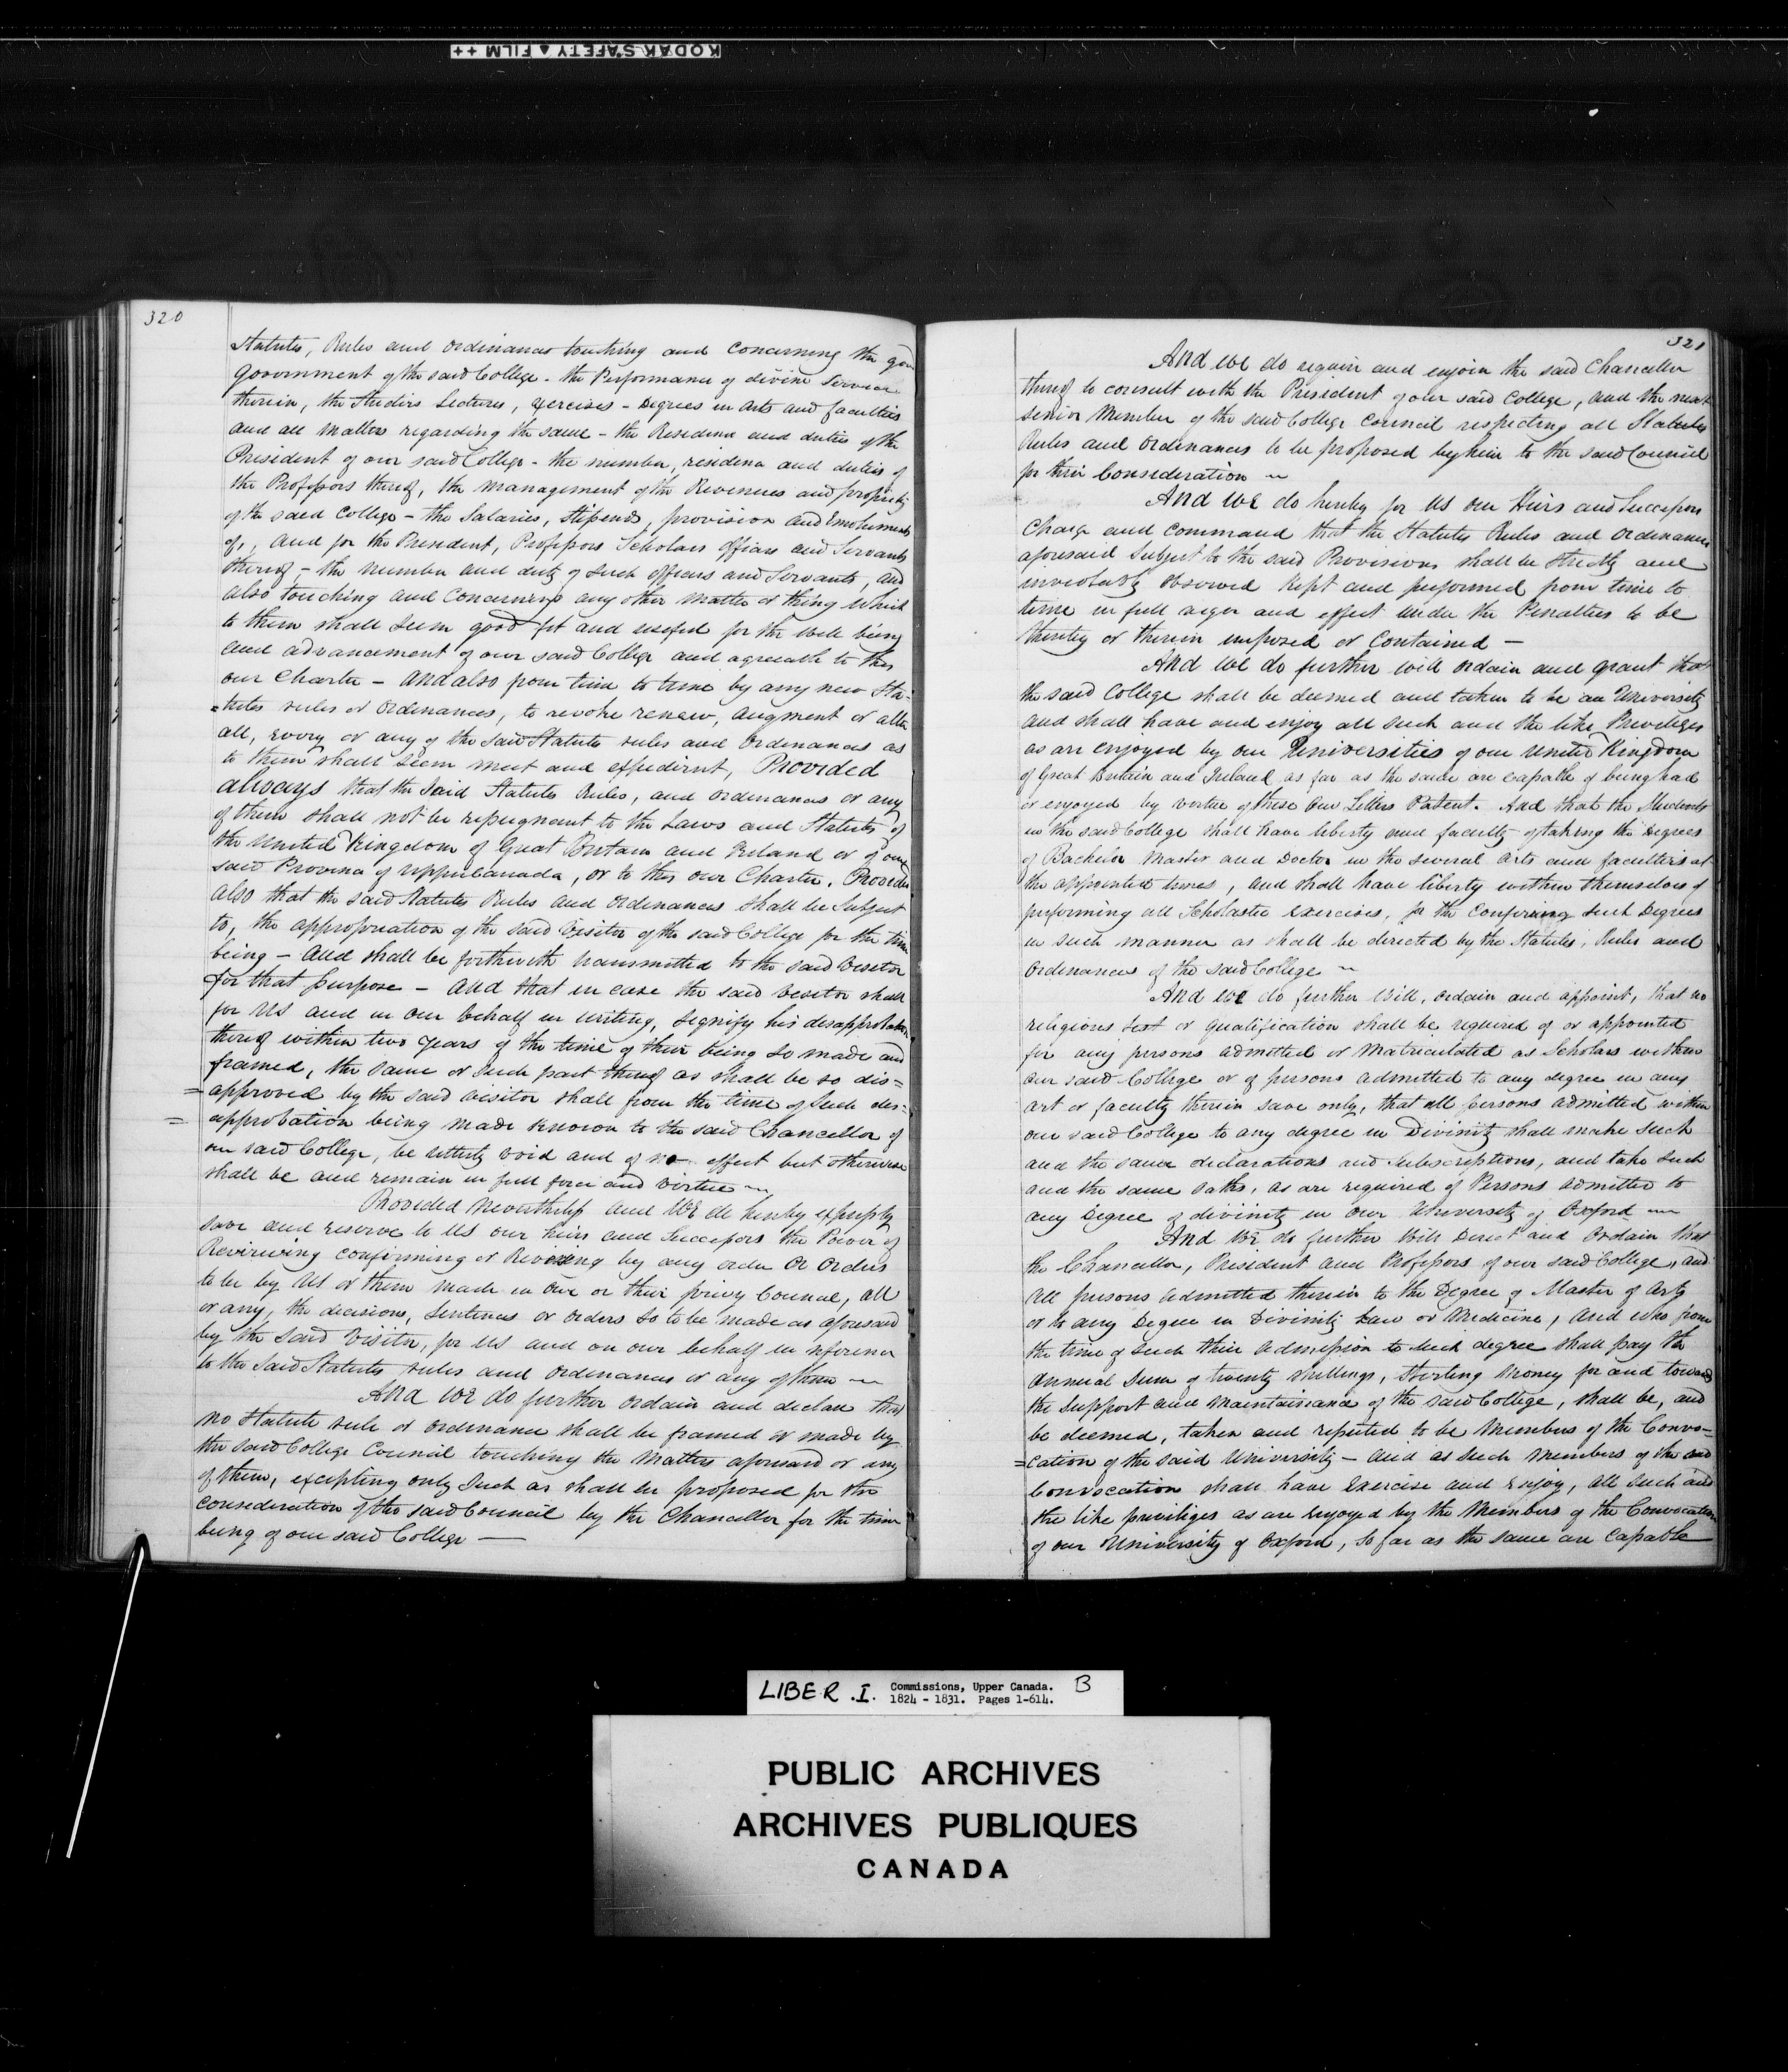 KODAK SAFETY ▲ FILM ++
320
Statutes, Rules and Ordinances touching and concerning the good
Government of the said College - the Performance of divine Service
therein, the Studies Lectures, Exercises - Degrees in Arts and faculties
and all matters regarding the same - the Residence and duties of the
President of our said College - the number, residence and duties of
the Professors thereof, the management of the Revenues and property
of the said College - the Salaries, Stipends, provision and Emoluments
of, and for the President, Professors Scholars Officers and Servants
thereof, - the number and duty of such officers and Servants, and
also touching and Concerning any other matter or thing which
to them shall seem good fit and useful for the well being
and advancement of our said College and agreeable to this
our Charter - and also from time to time by any new Sta-
=tutes rules or Ordinances, to revoke renew, augment or alter
all, every or any of the said Statutes rules and Ordinances as
to them shall seem meet and expedient, Provided
always that the said Statutes Rules, and Ordinances or any
of them shall not be repugnant to the Laws and Statutes of
the United Kingdom of Great Britain and Ireland or of our
said Province of Upper Canada, or to this our Charter. Provided
also that the said Statutes Rules and Ordinances shall be Subject
to, the appropriation of the said Visitor of the said College for the time
being - and shall be forthwith transmitted to the said Visitor
for that purpose - and that in case the said Visitor shall
for us and in our behalf in writing, signify his disapprobation
thereof within two years of the time of their being so made and
framed, the same or such part thereof as shall be so dis=
=approved by the said Visitor shall from the time of such dis=
=approbation being made known to the said Chancellor of
our said College, be utterly void and of no effect but otherwise
shall be and remain in full force and virtue ~
Provided Nevertheless and We do hereby expressly
save and reserve to us our heirs and Successors the Power of
Reviewing confirming or Revoking by any order or orders
to be by us or them made in our or their privy Council, all
or any, the decisions, Sentences or orders so to be made as aforesaid
by the said Visitor, for us and on our behalf in reference
to the said Statutes, rules and ordinances or any of them ~
And we do further ordain and declare that
no statute rule or ordinance shall be framed or made by
the said College Council touching the matters aforesaid or any
of them, excepting only such as shall be proposed for the
consideration of the said Council by the Chancellor for the time
being of our said College —
321
And we do require and enjoin the said Chancellor
thereof to consult with the President of our said College, and the next
senior Member of the said College Council respecting all Statutes
Rules and Ordinances to be proposed by him to the said Council
for their Consideration ~
And we do hereby for us our Heirs and Successors
Charge and command that the Statutes Rules and Ordinances
aforesaid Subject to the said Provisions shall be strictly and
inviolably observed kept and performed from time to
time in full vigor and effect under the Penalties to be
thereby or therein imposed or contained —
And we do further will ordain and grant that
the said College shall be deemed and taken to be an University
and shall have and enjoy all such and the like Privileges
as are enjoyed by our Universities of our United Kingdom
of Great Britain and Ireland as far as the same are capable of being had
or enjoyed by virtue of these our Letters Patent. And that the Students
in the said College shall have liberty and faculty of taking the Degrees
of Bachelor Master and Doctor in the several arts and faculties at
the appointed times, and shall have liberty within themselves of
performing all Scholastic exercises, for the Conferring such Degrees
in such manner as shall be directed by the Statutes, Rules and
Ordinances of the said College ~
And we do further will, ordain and appoint, that no
religious test or qualification shall be required of or appointed
for any persons admitted or Matriculated as Scholars within
our said College or of persons admitted to any degree in any
art or faculty therein save only, that all persons admitted within
our said College to any degree in Divinity shall make such
and the same declarations and Subscriptions, and take such
and the same oaths, as are required of Persons admitted to
any Degree of divinity in our University of Oxford ~
And we do further Will Direct and Ordain that
the Chancellor, President and Professors of our said College, and
all persons admitted therein to the Degree of Master of Arts
or to any Degree in Divinity Law or Medicine, and who from
the time of such their admission to such degree shall pay the
annual Sum of twenty shillings, Sterling Money for and toward
the support and maintainance of the said College, shall be, and
be deemed, taken and reputed to be Members of the Convo-
=cation of the said University - and as such Members of the said
Convocation shall have Exercise and Enjoy, all such and
the like priviliges as are enjoyed by the Members of the Convocation
of our University of Oxford, so far as the same are Capable
LIBER .I. Commissions, Upper Canada. B
1824 - 1831. Pages 1-614.
PUBLIC ARCHIVES
ARCHIVES PUBLIQUES
CANADA